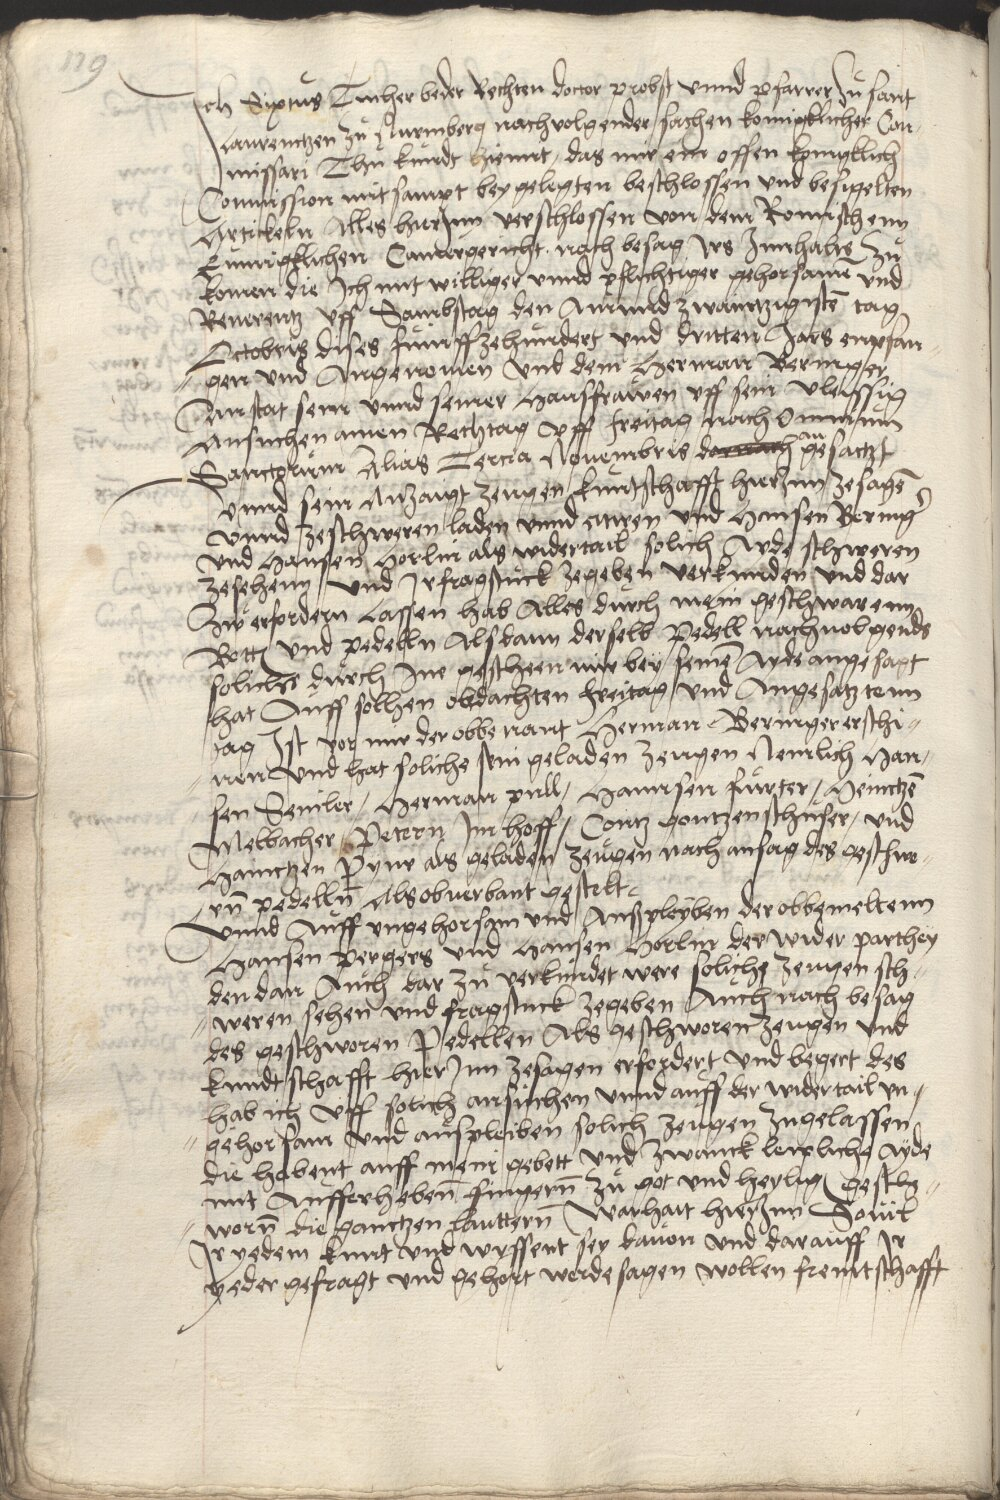 119
Ich Sixtus Tucher beder Rechten doctor probst vnnd pfarrer zu sant
Laurentzen zu Nurmberg nachvolgender sachen koniglicher Com-
missari Thu kundt hiemit, das mir ein offen koniglich
Commission mit sampt beygelegten beschlossen vnd besigelten
Artickeln Alles hierInn verschlossen von dem Romischenn
kunigklichen Camergericht nach besag Irs Innhalts zu
komen die Ich mit williger vnnd pflichtiger gehorsame vnd
Reuerentz vff Sambstag den Ainundzwaintzigisten tag
Octobris dises funffzehundert vnd dritten Jars empfan-
gen vnd Angenomen vnd dem Herman Beringer
Anstat sein vnnd seiner Hausfrawen vff sein vleissig
Ansuchen ainen Rechtag vff freitag nach Omnium
Sanctorum Alias Tercia Nouembris darnach an gesatzt
vnnd sein Anzaigt zeugen kuntschafft hierInn zesagen
vnnd zeschweren laden vnnd citiren vnd Hansen Bering
vnd Hansen Horlin als widertail solich Ayde schweren
zesehenn vnd Ir fragstuck zegeben verkunden vnd dar
Zw erfordern Lassen hab Alles durch mein geschwarenn
Bott vnd pedelln Als dann derselb Pedell nachuolgends
solichs durch Ine gescheen mir bey seine Ayde angesagt
hat Auff solhen obdachten freitag vnd Angesatztenn
tag Ist vor mir der obbenant Herman Beringer erschi-
nen vnd hat soliche sein geladen zeugen Nemlich Han-
sen Semler, Herman pull, Hannsen furter, Heintzen
Melbacher Petern Im hoff, Contz gontzenschuser, vnd
Haintzen Pynr als geladen zeugen nach ansag des geschwo-
rn pedelln Als obuerbant gestelt
Vnnd Auff vngehorsam vnd Ausspleyben der obbemeltenn
Hansen Pergers vnd Hansen Horlin der wider parthey
den dan Auch dar zu verkundet were soliche zeugen sch-
weren sehen vnd fragstuck zegeben Auch nach besag
des geschworen Pedellen Als geschworen zeugen vnd
kundtschafft hierInn zesagen erfordert vnd begert des
hab ich vff solich ansuchen vnnd auff der widertail vn-
gehorsam vnd auspleiben solich zeugen zugelassen
die habent auff mein gebott vnd zwanck leipliche Ayde
mit Aufferheben fingern zu got vnd heylig geschw-
worn die gantzen lauttern Warhait hierInn Souil
Ir yedem kunt vnd wyssent sey dauon vnd darauff Ir
yeder gefragt vnd gehort werde sagen wollen freuntschafft